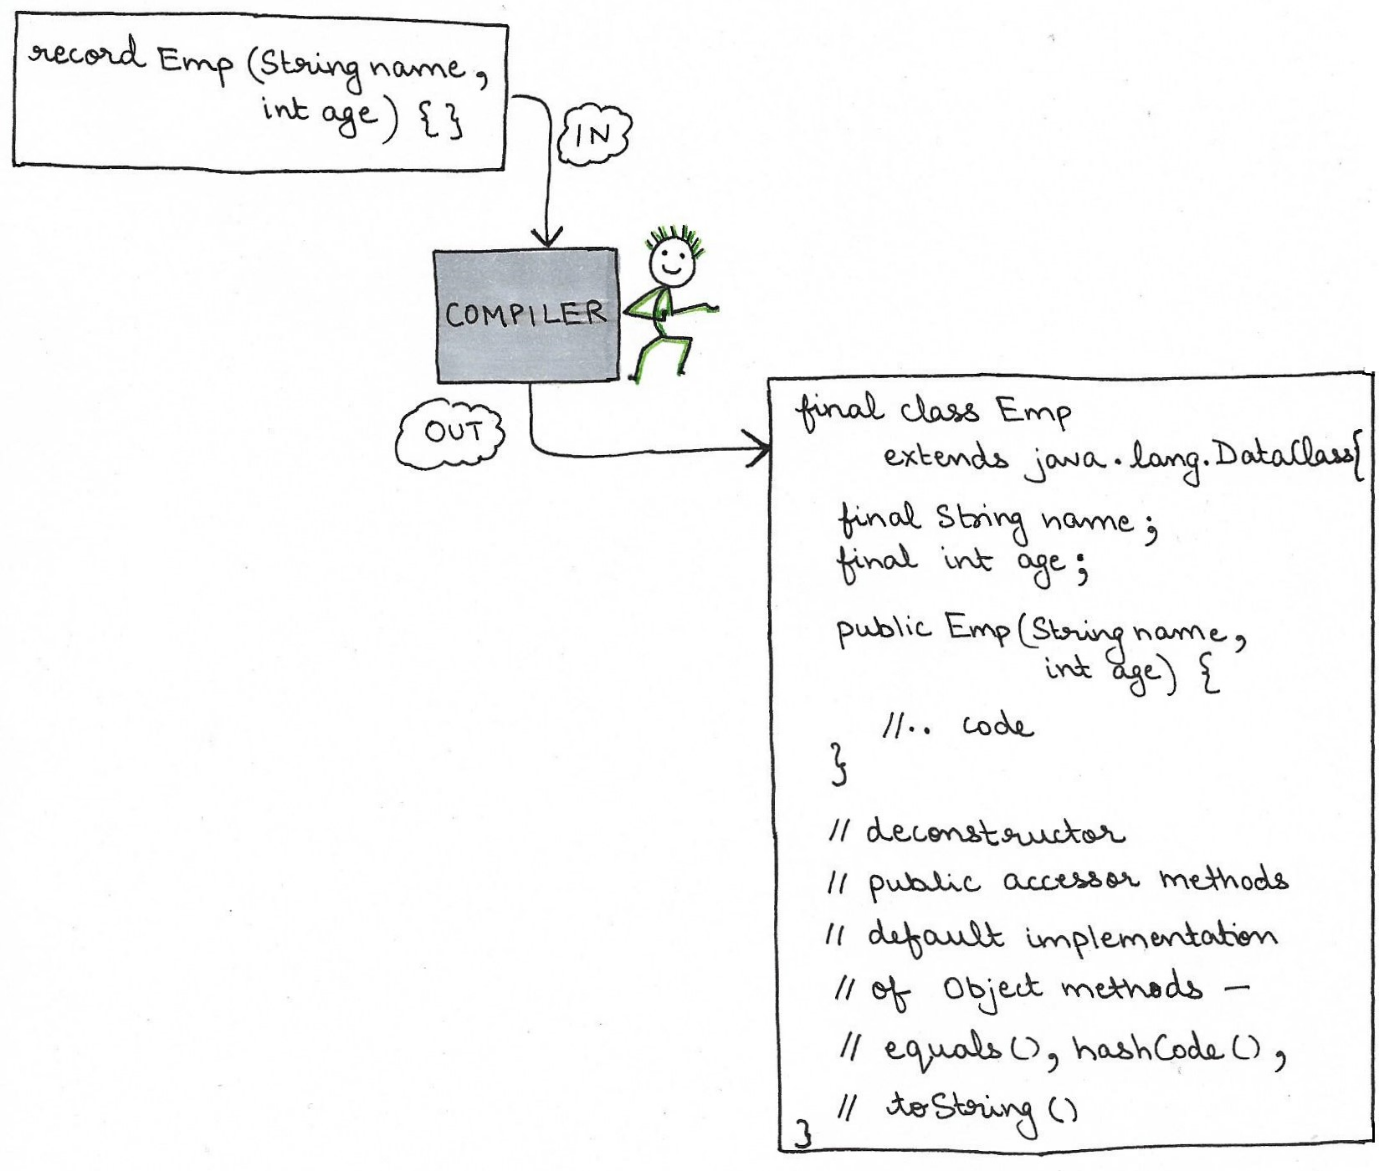 record Emp (String name,
int age) { }
IN
COMPILER
OUT
final class Emp
extends java.lang.DataClass{
final String name;
final int age;
public Emp(String name,
int age) {
//.. code
}
// deconstructor
// public accessor methods
// default implementation
// of Object methods –
// equals(), hashCode(),
// toString()
}